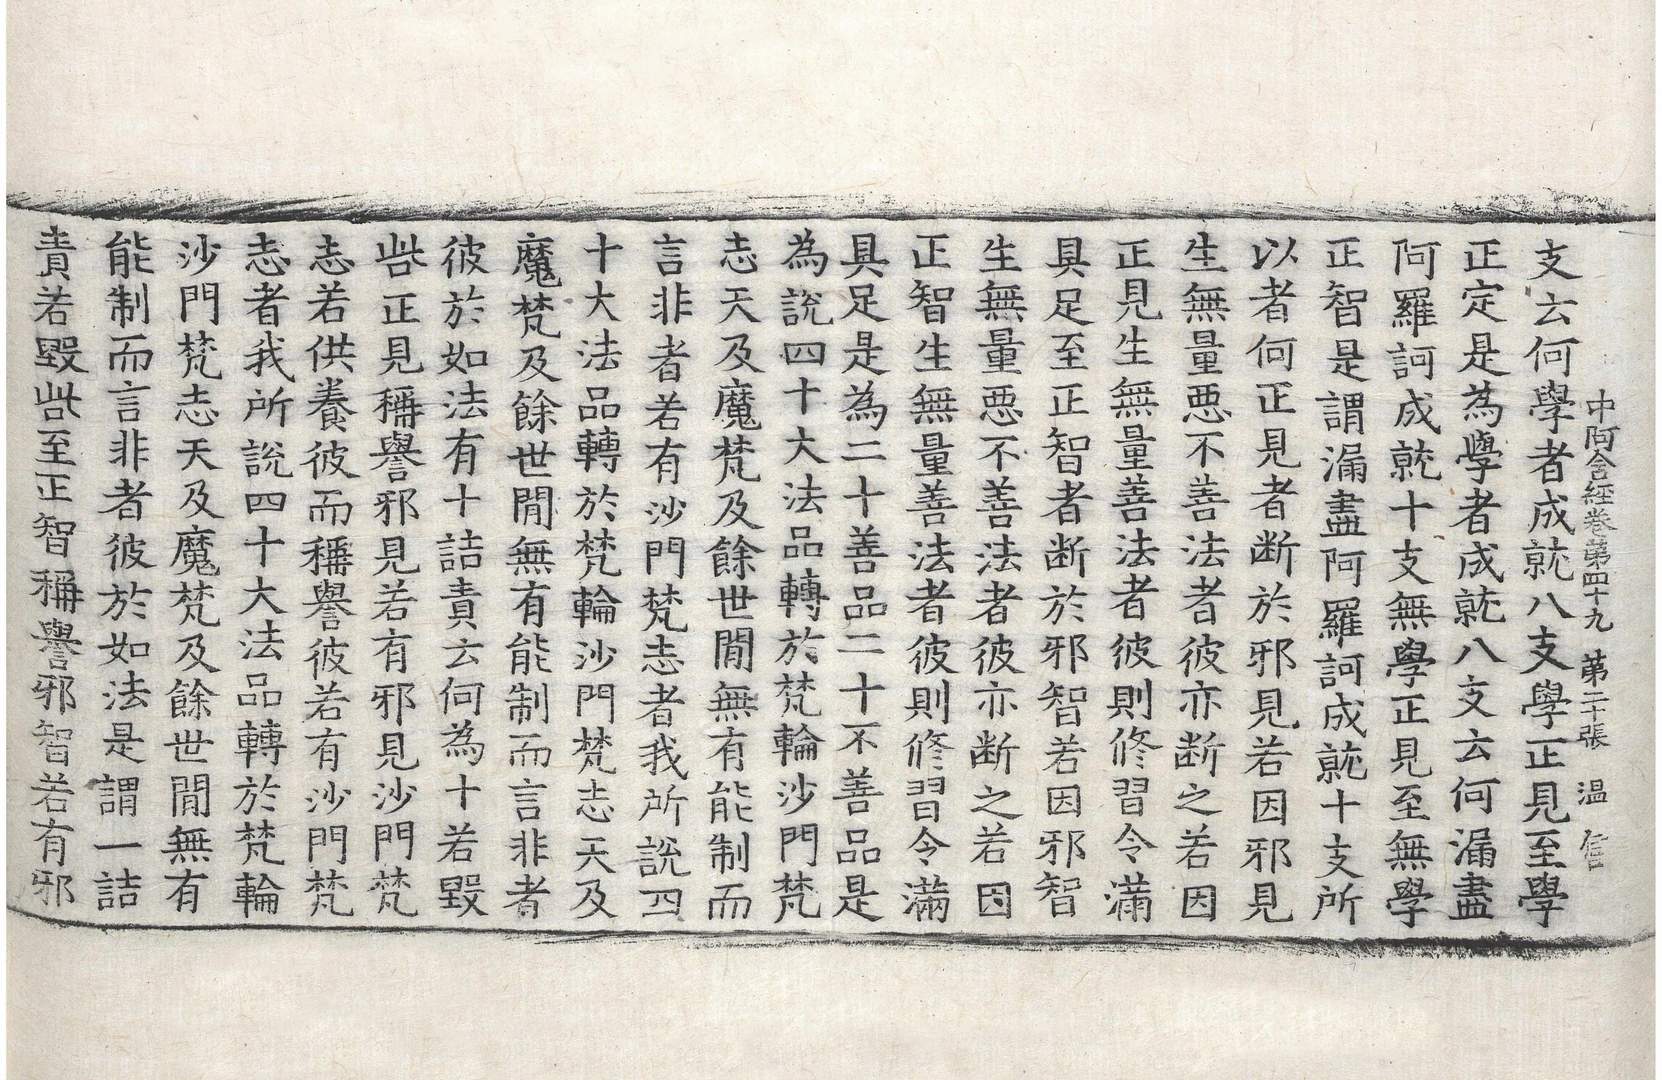 中阿含經卷第四十九　第二十張　温　信
支云何學者成就八支學正見至學
正定是為學者成就八支云何漏盡
阿羅訶成就十支無學正見至無學
正智是謂漏盡阿羅訶成就十支所
以者何正見者断於邪見若因邪見
生無量惡不善法者彼亦断之若因
正見生無量善法者彼則修習令滿
具足至正智者断於邪智若因邪智
生無量惡不善法者彼亦断之若因
正智生無量善法者彼則修習令滿
具足是為二十善品二十不善品是
為說四十大法品轉於梵輪沙門梵
志天及魔梵及餘世閒無有能制而
言非者若有沙門梵志者我所說四
十大法品轉於梵輪沙門梵志天及
魔梵及餘世閒無有能制而言非者
彼於如法有十詰責云何為十若毀
呰正見稱譽邪見若有邪見沙門梵
志若供養彼而稱譽彼若有沙門梵
志者我所說四十大法品轉於梵輪
沙門梵志天及魔梵及餘世閒無有
能制而言非者彼於如法是謂一詰
責若毀呰至正智稱譽邪智若有邪